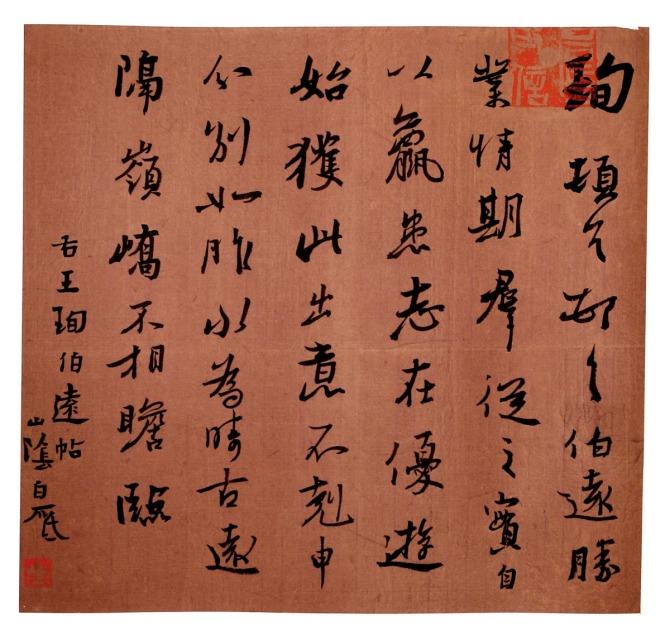 珣頓首頓首伯遠勝
業情期群從之寶自
以羸患志在優遊
始獲此出意不剋申
分別如昨永為疇古遠
隔嶺嶠不相瞻臨
右王珣伯遠帖
山陰白砥